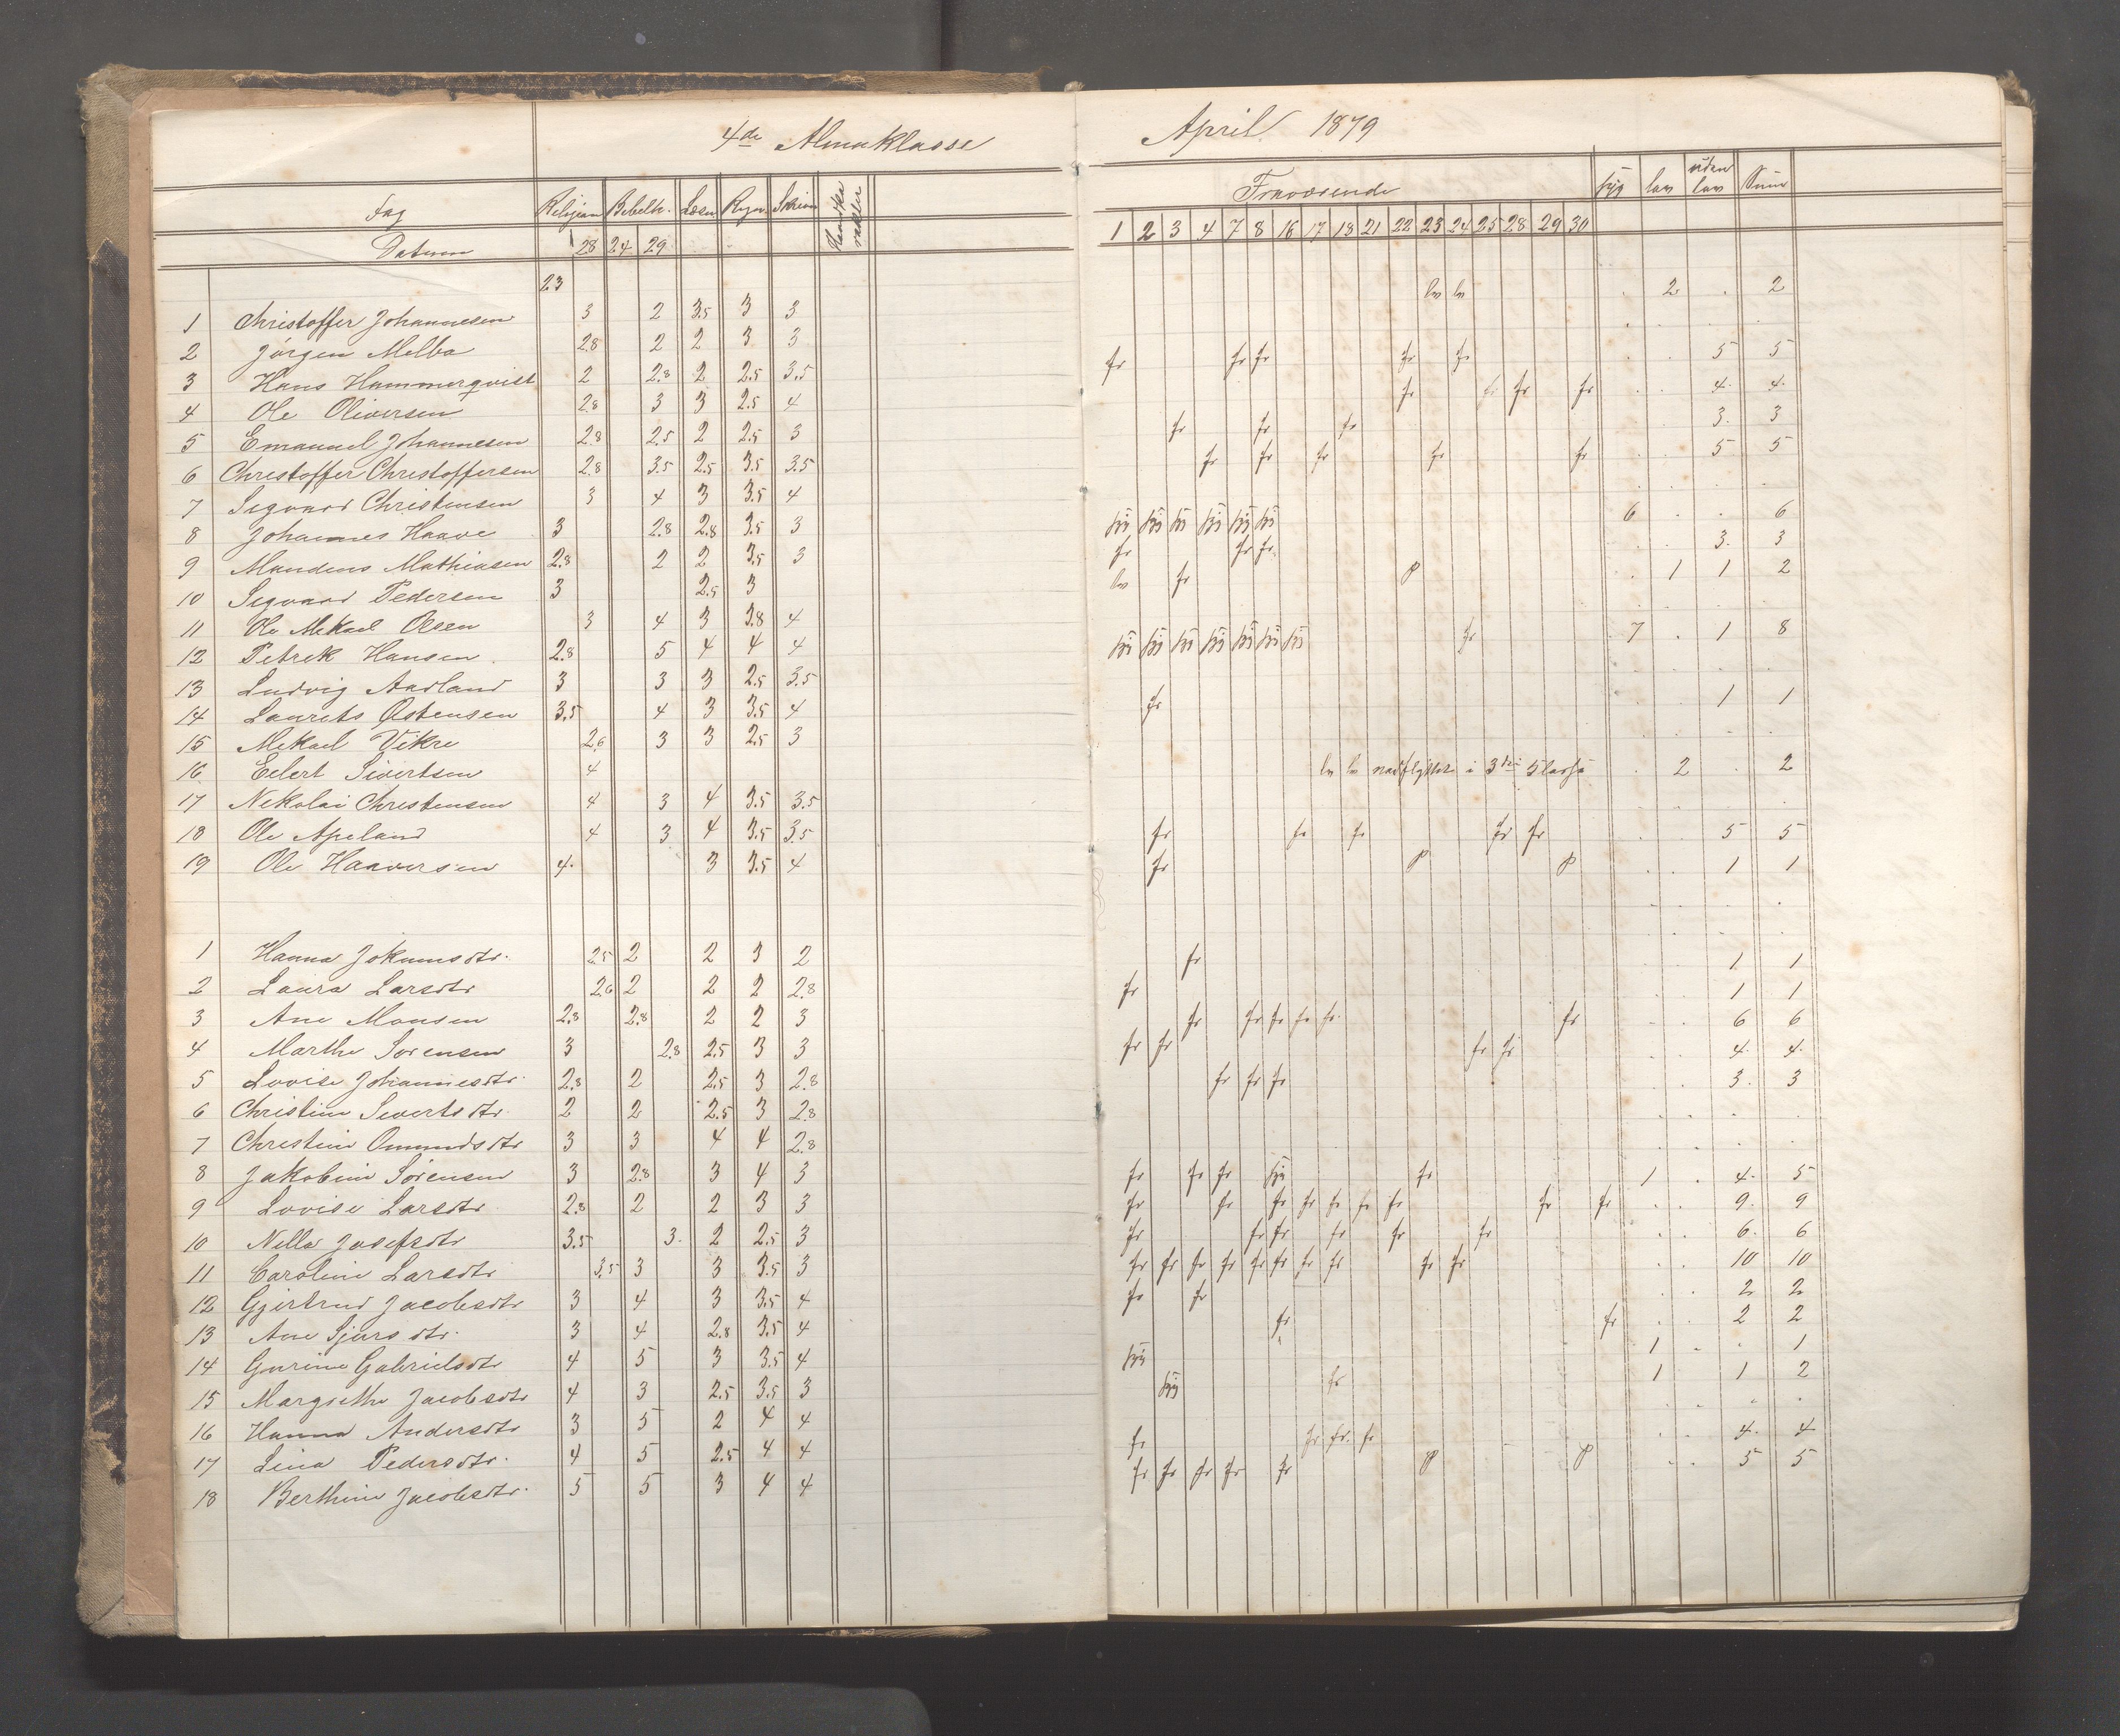 4de Almuklasse
April 1879
Fag Religion Bibelh. Læsn Regn. Skrivn
Datum 28 24 29
23
Fraværende syg lov uden lov Sum
1 2 3 4 7 8 16 17 18 21 22 23 24 25 28 29 30
1 Christoffer Johannesen 3 2 3.5 3 3 lov lov . 2 . 2
2 Jörgen Melbo 2.8 2 2 3 3
3 Hans Hammerqvist 2 2.8 2 2.5 3.5 fr fr fr fr fr . . 5 5
4 Ole Oliversen 2.8 3 3 2.5 4 fr fr fr fr . . 4. 4.
5 Emanuel Johannesen 2.8 2.5 2 2.5 3 fr fr fr . . 3. 3
6 Christoffer Christoffersen 2.8 3.5 2.5 3.5 3.5 fr fr fr fr fr . . 5 5
7 Sigvard Christensen 3 4 3 3.5 4
8 Johannes Haave 3 2.8 2.8 3.5 3 syg syg syg syg syg syg 6 . . 6
9 Mandens Mathiasen 2.8 2 2 3.5 3 fr fr fr . . 3. 3
10 Sigvard Pedersen 3 2.5 3 lov fr . 1 1 2
11 Ole Mekael Olsen 3 4 3 3.8 4
12 Petrek Hansen 2.8 5 4 4 4 syg syg syg syg syg syg syg fr 7 . 1 8
13 Ludvig Aadland 3 3 3 2.5 3.5
14 Laurits Østensen 3.5 4 3 3.5 4 fr . . 1 1
15 Mekael Vikre 2.6 3 3 2.5 3
16 Eilert Sivertsen 4 lov lov nedflyttet i 3die Klasse . 2 . 2
17 Nekolai Christensen 4 3 4 3.5 3.5
18 Ole Apeland 4 3 4 3.5 3.5 fr fr fr fr fr . . 5 5
19 Ole Haaversen 4. 3 3.5 4 fr . . 1 1
1 Hanna Jokumsdtr. 2.5 2 2 3 2 fr . . 1 1
2 Laura Larsdtr 2.6 2 2 2 2.8 fr . . 1 1
3 Ane Monsen 2.8 2.8 2 2 3 fr fr fr fr fr fr . . 6 6
4 Marthe Sørensen 3 2.8 2.5 3 3 fr fr fr fr . . 4. 4.
5 Lovise Johannesdtr. 2.8 2 2.5 3 2.8 fr fr fr . . 3. 3
6 Christine Sivertsdtr. 2 2 2.5 3 2.8
7 Christine Omundsdtr 3 3 4 4 2.8
8 Jakobine Sørensen 3 2.8 3 4 3 fr fr fr syg fr 1 . 4. 5
9 Lovise Larsdtr 2.8 2 2 3 3 fr fr fr fr fr fr fr fr fr . . 9. 9
10 Nille Josefsdtr 3.5 3. 2 2.5 3 fr fr fr fr fr fr . . 6. 6
11 Caroline Larsdtr 3.5 3 3 3.5 3 fr fr fr fr fr fr fr fr fr fr . . 10 10
12 Gjertrud Jacobsdtr 3 4 3 3.5 4 fr fr . . 2 2
13 Ane Sjursdtr. 3 4 2.8 3.5 4 fr fr . . 2 2
14 Gurine Gabrielsdtr 4 5 3 3.5 4 syg 1 . . 1
15 Margrethe Jacobsdtr 4 3 2.5 3.5 3 syg fr 1 1 2
16 Hanna Andersdtr 3 5 2 4 4
17 Lina Pedersdtr. 4 5 2.5 4 4 fr fr fr. fr . . 4. 4
18 Berthine Jacobsdtr. 5 5 3 4 4 fr fr fr fr fr . . 5 5